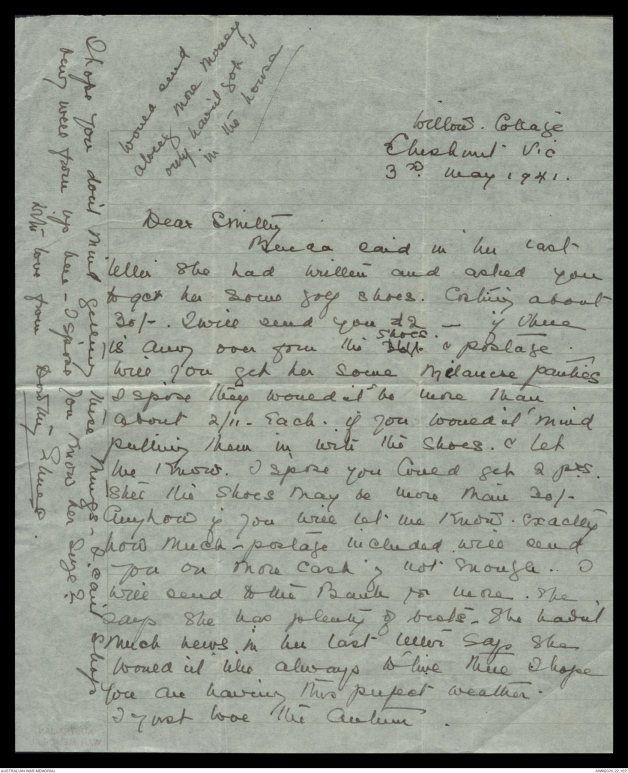 Willow. Cottage
Cheshunt Vic
3rd. May 1941.
Dear Smitty
said in her last
letter she had written and asked you
to get her some golf shoes. Costing about
30/-. I will send you £2 — if there
shoes.
is any over from the & postage
will you get her some Milanese panties
I spose they would n't be more than
about 2/11. Each. if you would n't mind
putting them in with the shoes. & let
me Know. I spose you could get 2 prs.
the shoes may be more than 30/-
Anyhow if you will let me Know. Exactly
how much - postage included will send
you on more cash if not enough. I
will send to the Bank for more. She
says she has plenty of vests. She hadn't
much news in her last letter says she
would n't like always to live there I hope
you are having this perfect weather.
I just love the Autumn.
I hope you don't mind getting these things - I can't shop
very well from up here - I spose you know her size?
with love from Dorothy
Would send
along more money
only haven't got it
in the house
AUSTRALIAN WAR MEMORIAL